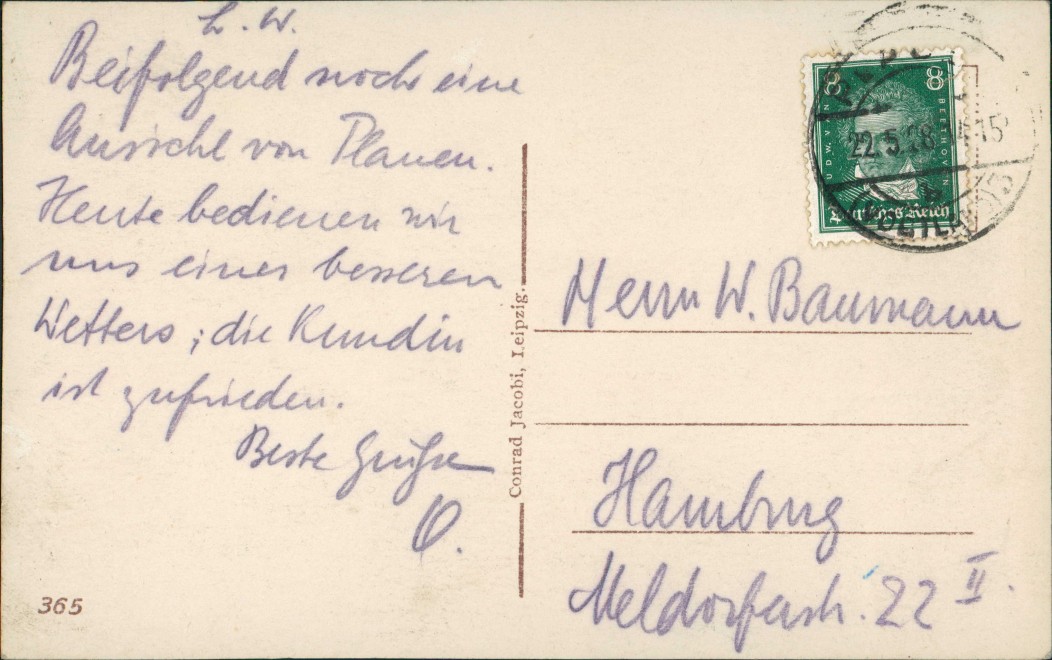 L. W.
Beifolgend noch eine
Ansicht von Plauen.
Heute bedienen wir
uns eines besseren
Wetters; die Kundin
ist zufrieden.
Beste Grüße
O.
365
Conrad Jacobi, Leipzig.
8 8
LUDW. VAN BEETHOVEN
Deutsches Reich
22.5.28 15
(VOGTL)
Herrn W. Baumann
Hamburg
Meldorferstr. 22 II.